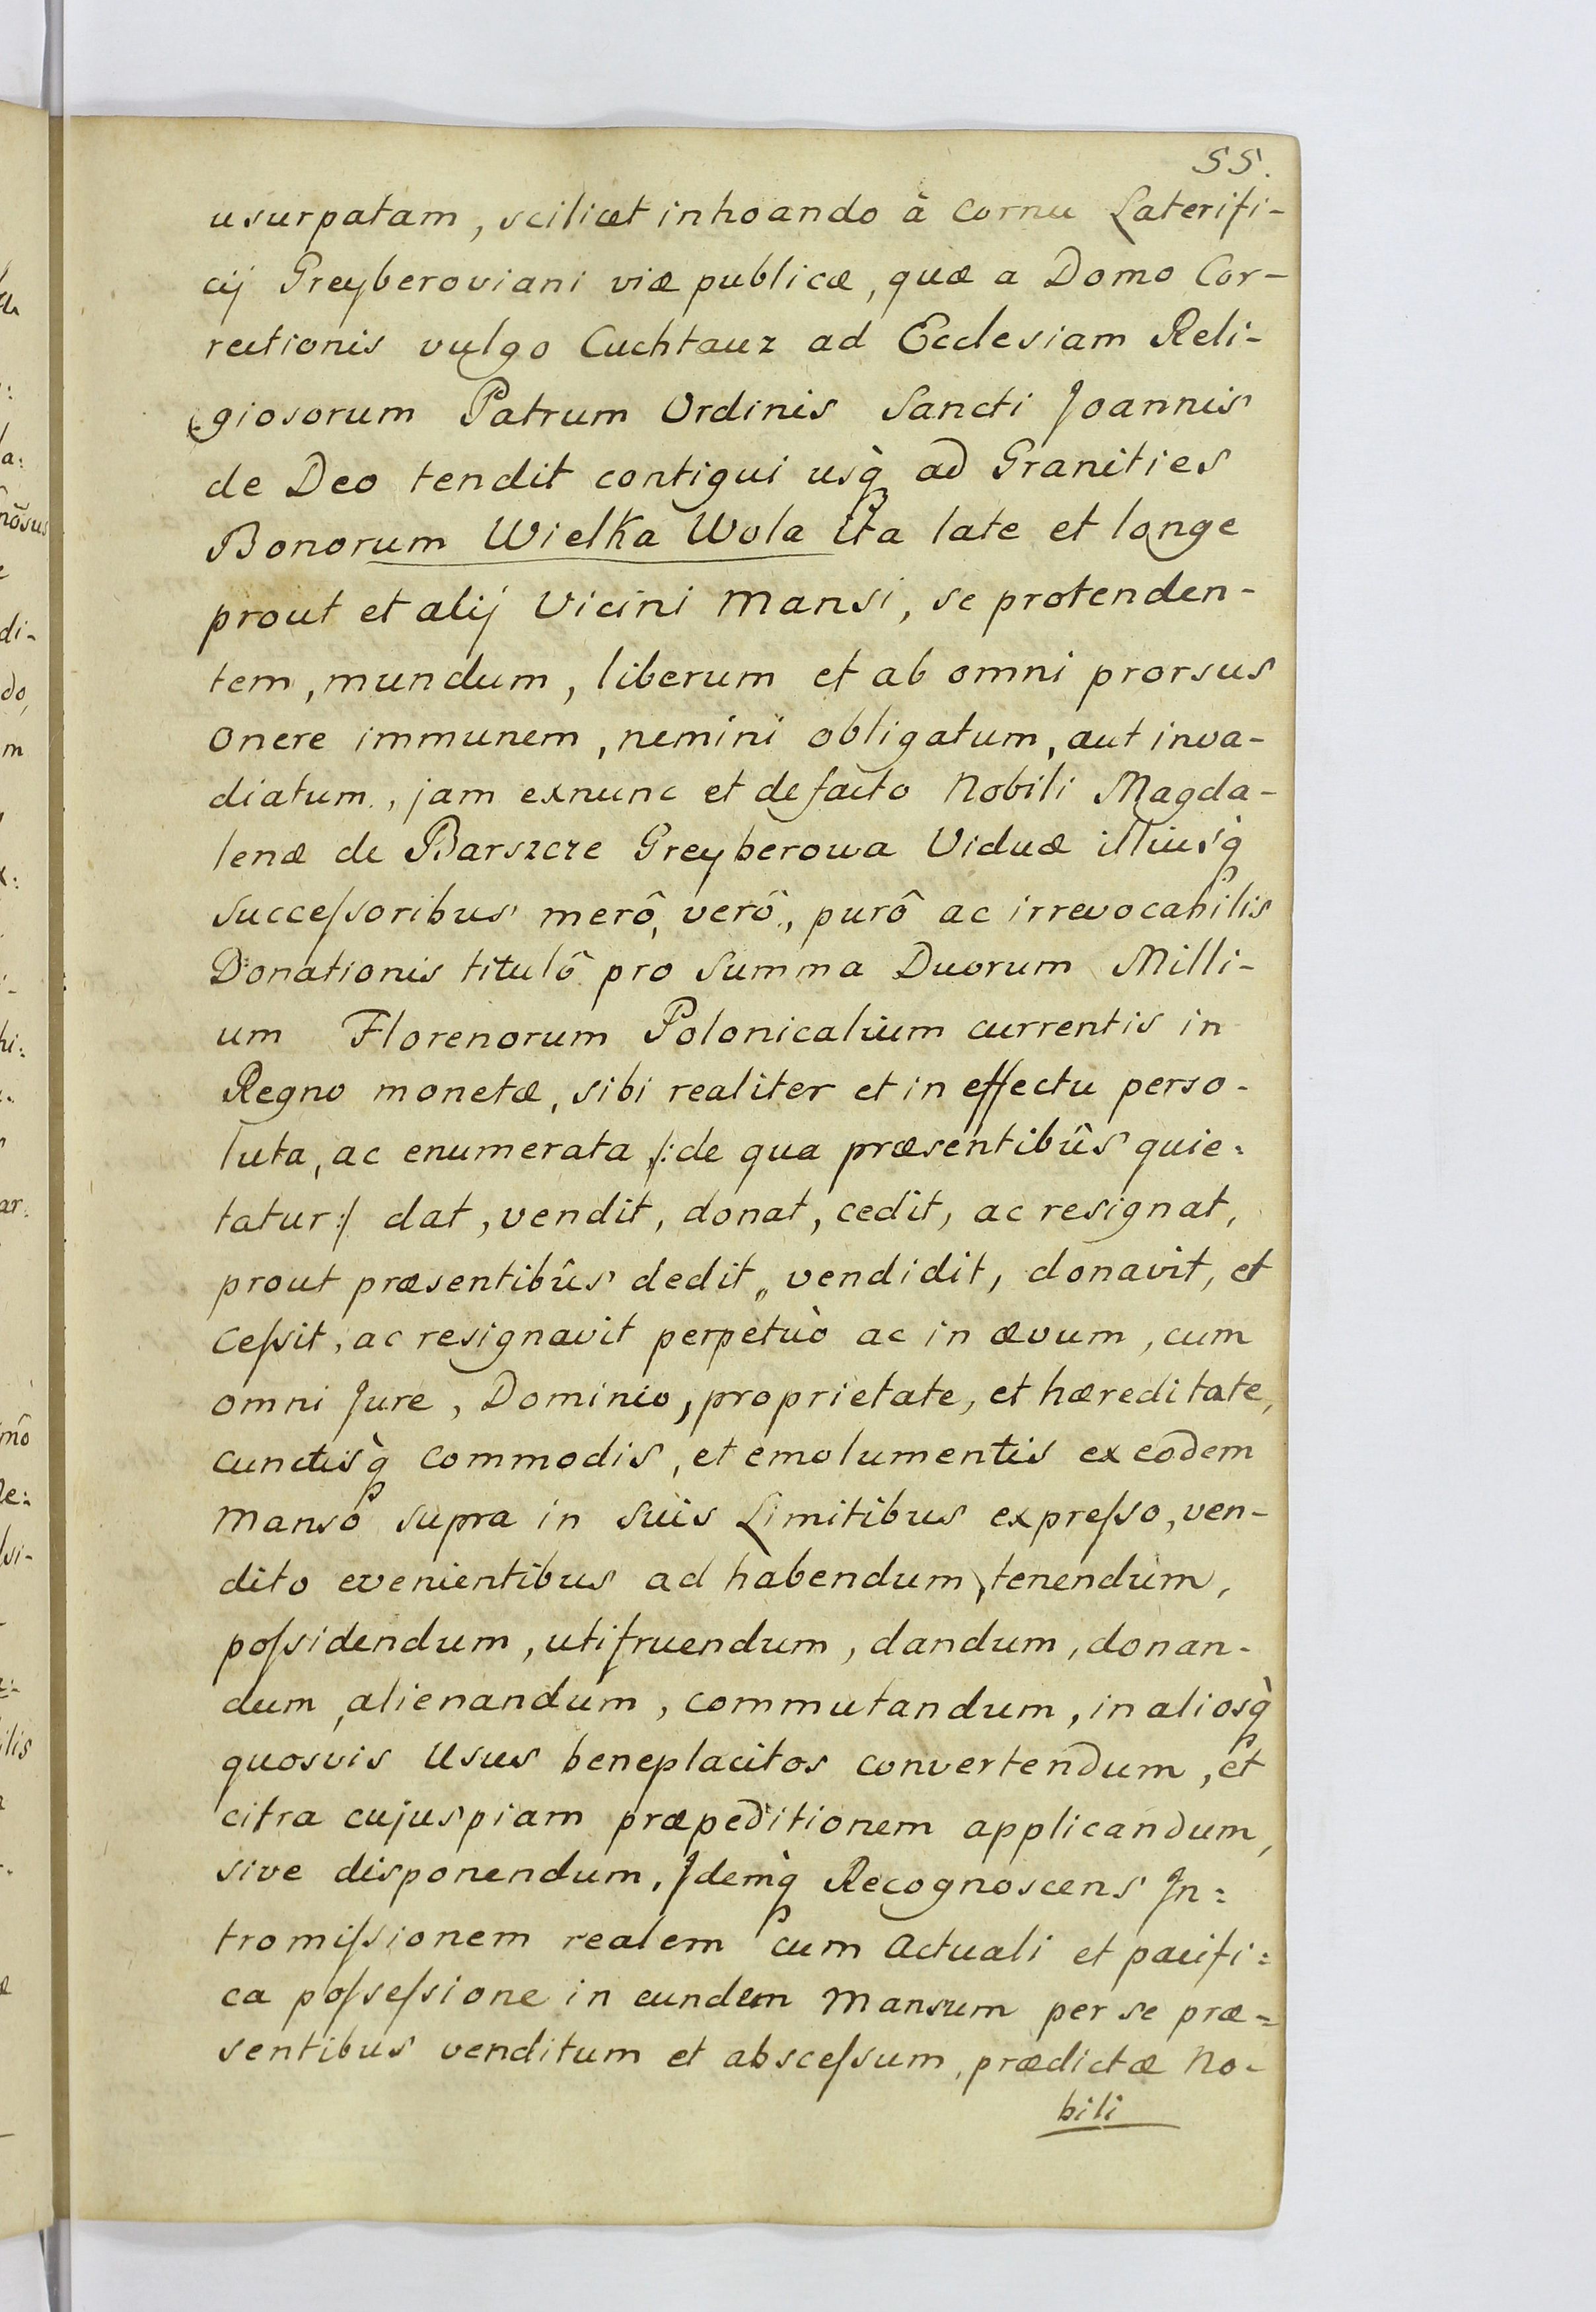 55.
usurpatam, scilicet inhoando à Cornu Laterifi-
cij Greyberoviani viæ publicæ, quæ a Domo Cor-
rectionis vulgo Cuchtauz ad Ecclesiam Reli-
giosorum Patrum Ordinis Sancti Joannis
de Deo tendit contigui usq̀ ad Granities
Bonorum Wielka Wola ita late et longe
prout et alij Vicini Mansi, se protenden-
tem, mundum, liberum et ab omni prorsus
onere immunem, nemini obligatum, aut inva-
diatum., jam exnunc et defacto Nobili Magda-
lenæ de Barszcze Greyberowa Viduæ illiusq̀
succeſsoribus merô, verô, purô ac irrevocabilis
Donationis titulô pro Summa Duorum Milli-
um Florenorum Polonicalium currentis in
Regno monetæ, sibi realiter et in effectu perso-
luta, ac enumerata /:de qua præsentibûs quie=
tatur:/ dat, vendit, donat, cedit, ac resignat,
prout præsentibûs dedit„ vendidit, donavit, et
Ceſsit, ac resignavit perpetuò ac in ævum, cum
omni Jure, Dominio, proprietate, et hæreditate,
cunctisq̀ Commodis, et emolumentis ex eodem
Manso supra in suis Limitibus expreſso, ven-
dito evenientibus ad habendum, tenendum,
poſsidendum, utifruendum, dandum, donan-
dum, alienandum, commutandum, in aliosq̀
quosvis Usus beneplacitos convertendum, et
citra cujuspiam præpeditionem applicandum,
sive disponendum, Jdemq̀ Recognoscens Jn=
tromiſsionem realem cum Actuali et pacifi=
ca poſseſsione in eundem Mansum per se præ=
sentibus venditum et absceſsum, prædictæ No-
bili